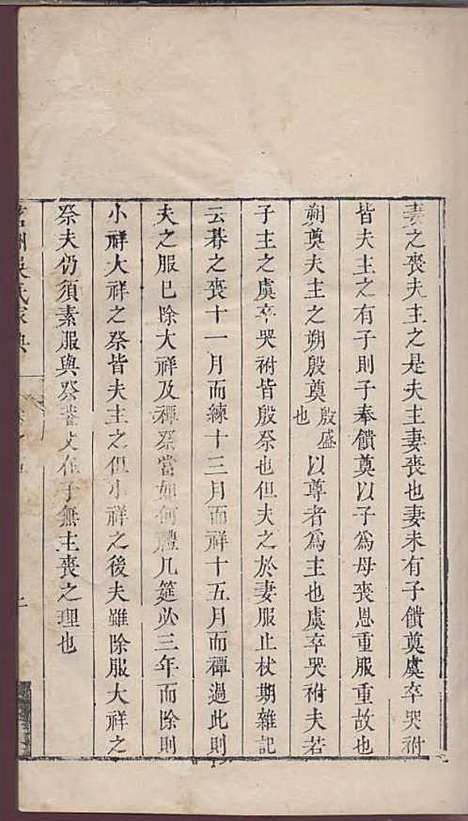 妻之喪夫主之是夫主妻喪也妻未有子饋奠虞卒哭祔
皆夫主之有子則子奉饋奠以子為母喪恩重服重故也
朔奠夫主之朔殷奠殷盛也以尊者為主也虞卒哭祔夫若
子主之虞卒哭祔皆殷祭也但夫之於妻服止杖期雜記
云朞之喪十一月而練十三月而祥十五月而禫過此則
夫之服已除大祥及禫祭當如何禮几筵必三年而除則
小祥大祥之祭皆夫主之但小祥之後夫雖除服大祥之
祭夫仍須素服與祭葢父在子無主喪之理也
吳氏家典